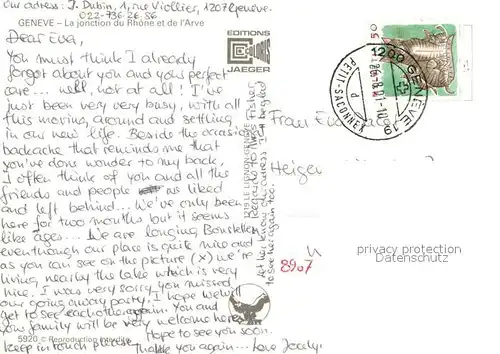 Our adress: J. Dubin, 1, rue Viollier, 1207 Genève.
022-736.26.86
GENEVE – La jonction du Rhône et de l'Arve
Dear Eva,
You must think I already
forgot about you and your perfect
care... well, not at all! I've
just been very very busy, with all
this moving around and settling
in our new life. Beside the occasional
backache that reminds me that
you've done wonder to my back,
I often think of you and all the
friends and people we liked
and left behind... We've only been
here for two months but it seems
like ages... We are longing Bonstetten
eventhough our place is quite nice and
as you can see on the picture (x) we're
living nearby the lake which is very
nice. I was very sorry you missed
our going away party. I hope we will
get to see each other again. You and
your family will be very welcome here.
Hope to see you soon.
Keep in touch please
Thank you again... Love Jocelyn
5920 © Reproduction interdite
EDITIONS
JAEGER
1219 LE LIGNON GENEVE
let her know our adress. I'd be glad
to see her again too.
50
1200 GENÈVE 19
PETIT-SACONNEX
Frau Eva
8907
privacy protection
Datenschutz